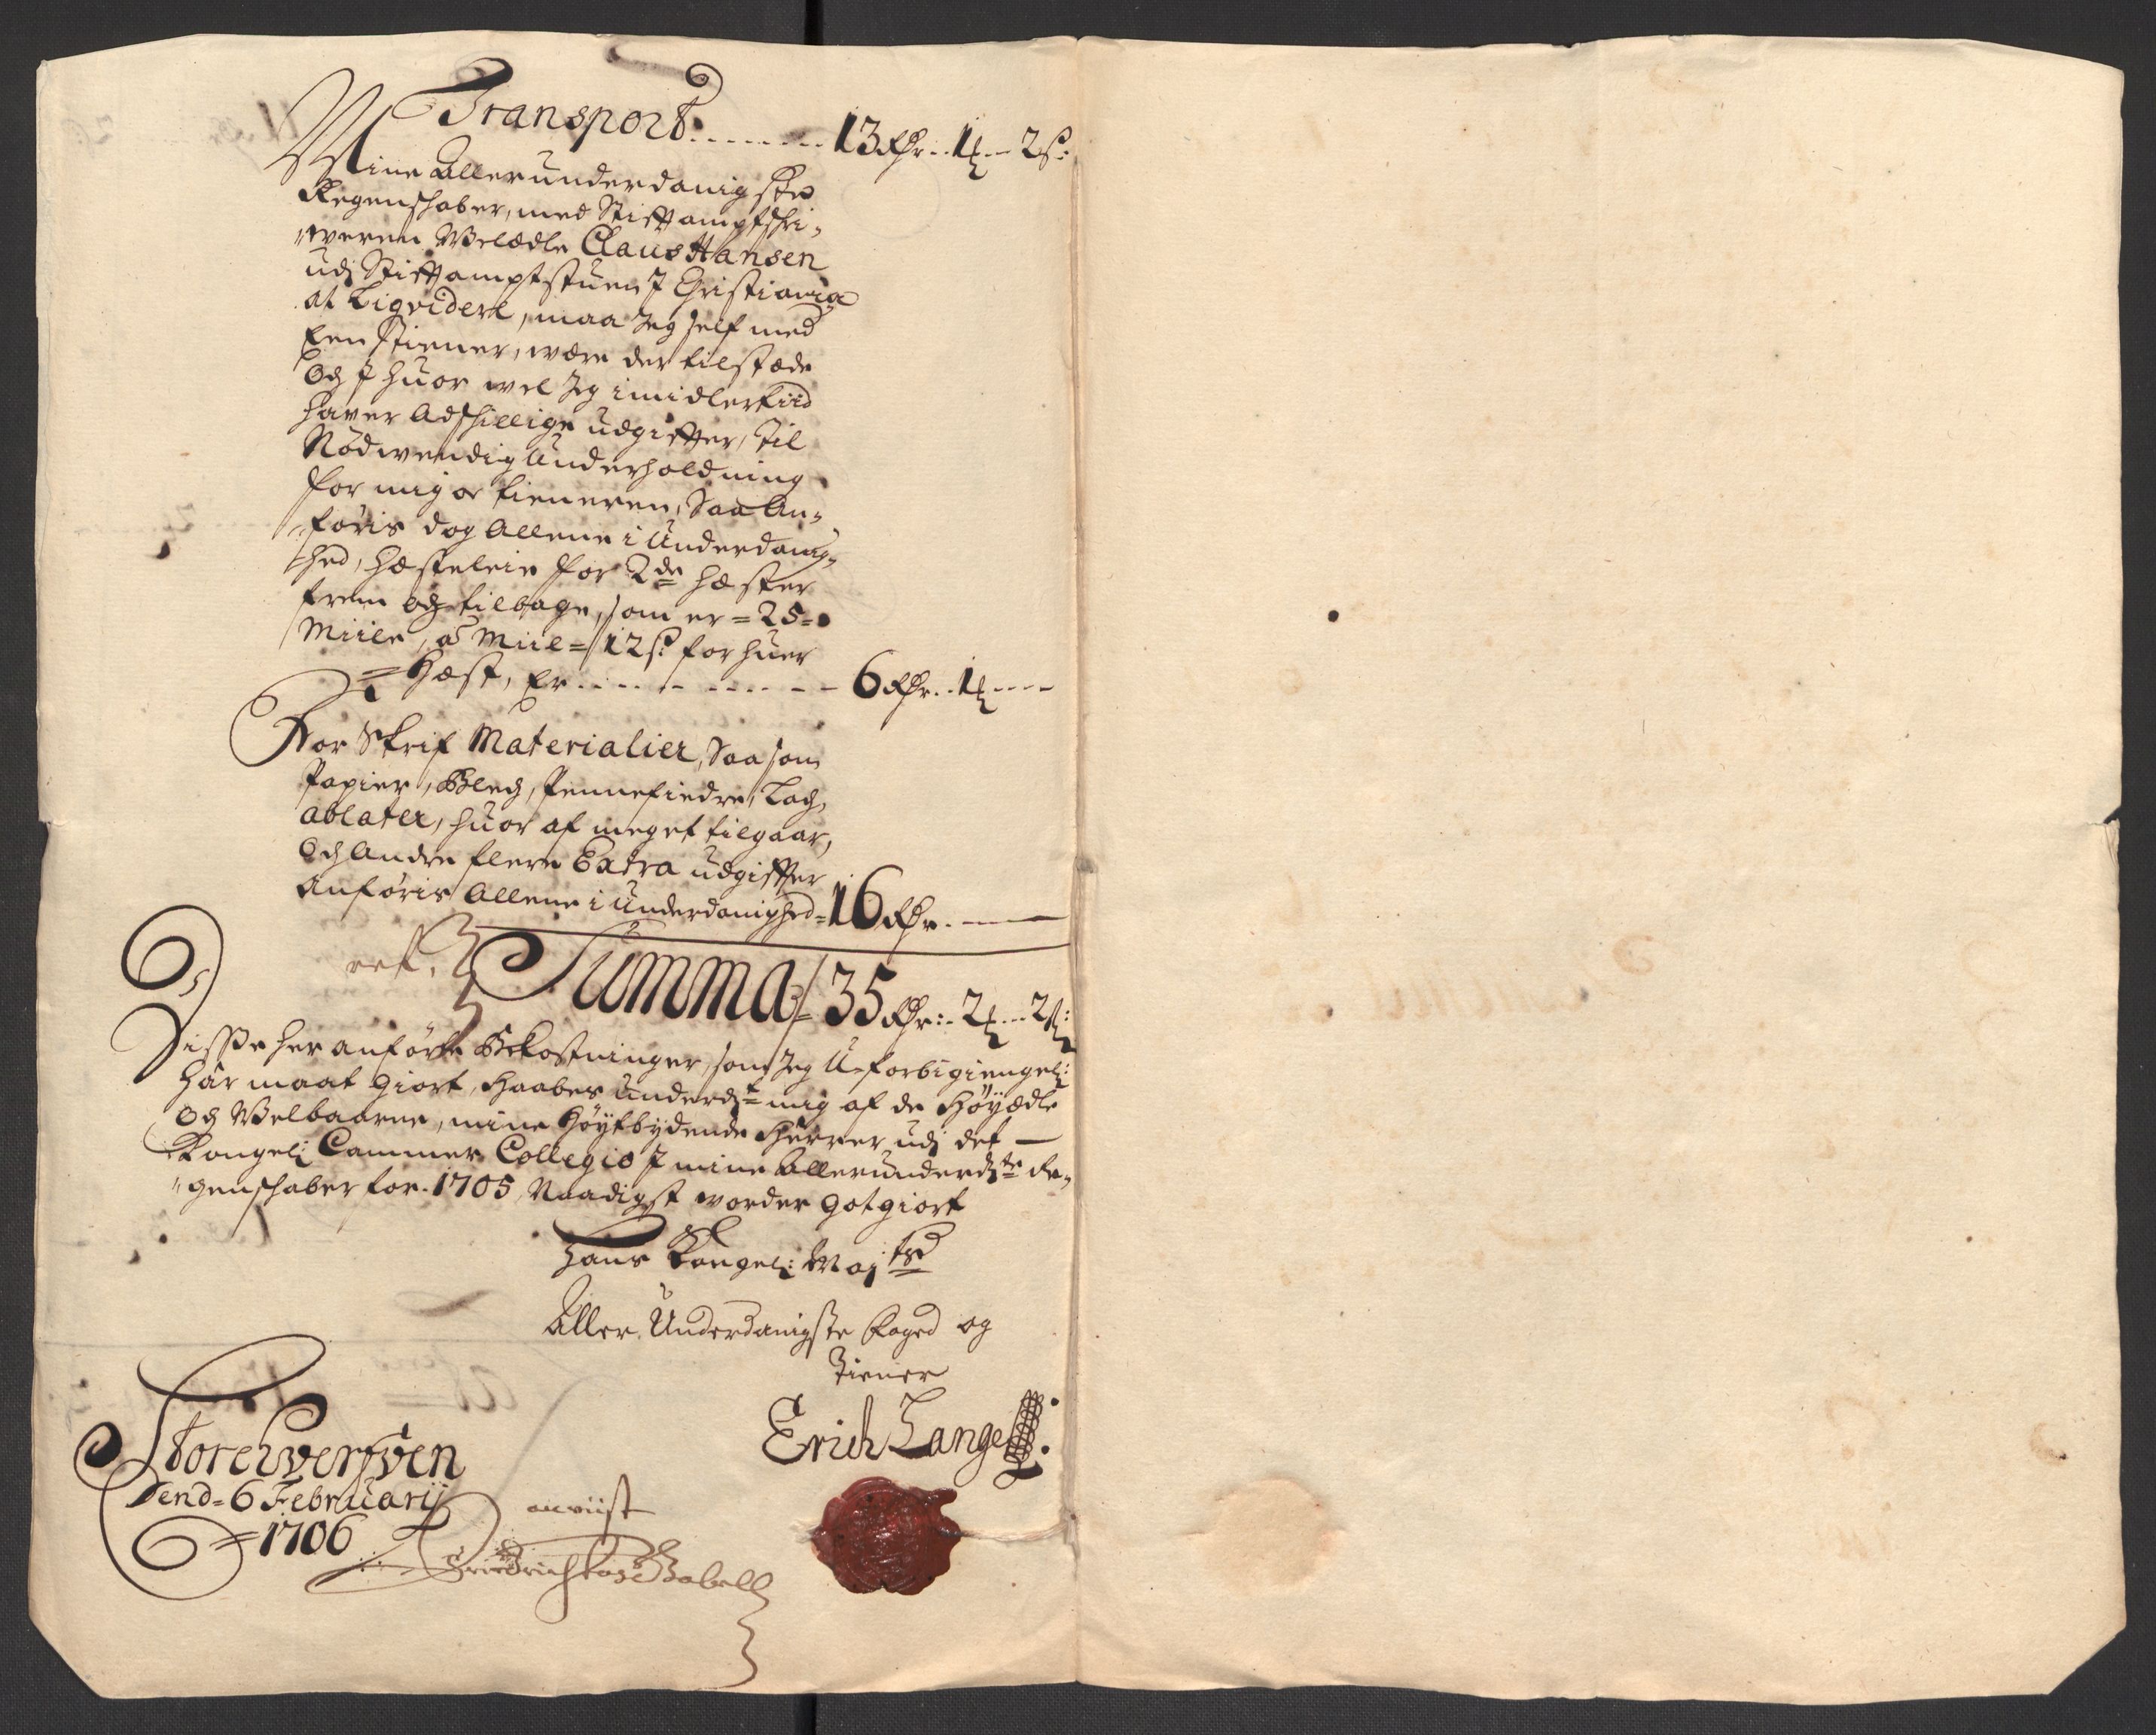 Transport ........ 13 Rdr .. 1 ℔ -- 2 s:
Mine Allerunderdanigste
Regenschaber, med Stifftamptschri-
"weren Welædle Claus Hansen
udj Stifftamptstuen J Christiania
at Liqvidere, maa Jeg self med
Een Tiener, være der tilstæde
Och J huor vel Jeg imidlertiid
haver Adschillige udgiffter, til
Nödwendig Underholdning
for mig oc tieneren, Saa An-
"föris dog Allene i Underdanig-
"hed, hæsteleie for 2de hæster
frem och tilbage, som er = 25 =
Miile, a Miil = 12 s: for huer
Hæst, Er .......... 6 Rdr .. 1 ℔ ---
For Skrif Materialier, Saasom
Papier, Blech, Pennefiedre, Lach,
ablater, huor af meget tilgaar,
Och Andre flere Extra udgiffter
Anföris Allene i Underdanighed = 16 Rdr. ---
Summa = 35 Rdr: .. 2 ℔ -- 2 s:
Disse her anförte Bekostninger, som Jeg U-forbigiengel:
har maat giort, Haabes underdt mig af de Höyædle
Och Welbaarne, mine Höytbydende Herrer udj det —
Kongel: Cammer Collegio J mine Allerunderdste Re-
"genschaber for 1705, Naadigst worder gotgiort
Hans Kongel: Majts
Aller Underdanigste Foged og
Tiener
Erich Lange
Storehversven
dend = 6 Februarij
1706
anviist
Friedrich Gabell